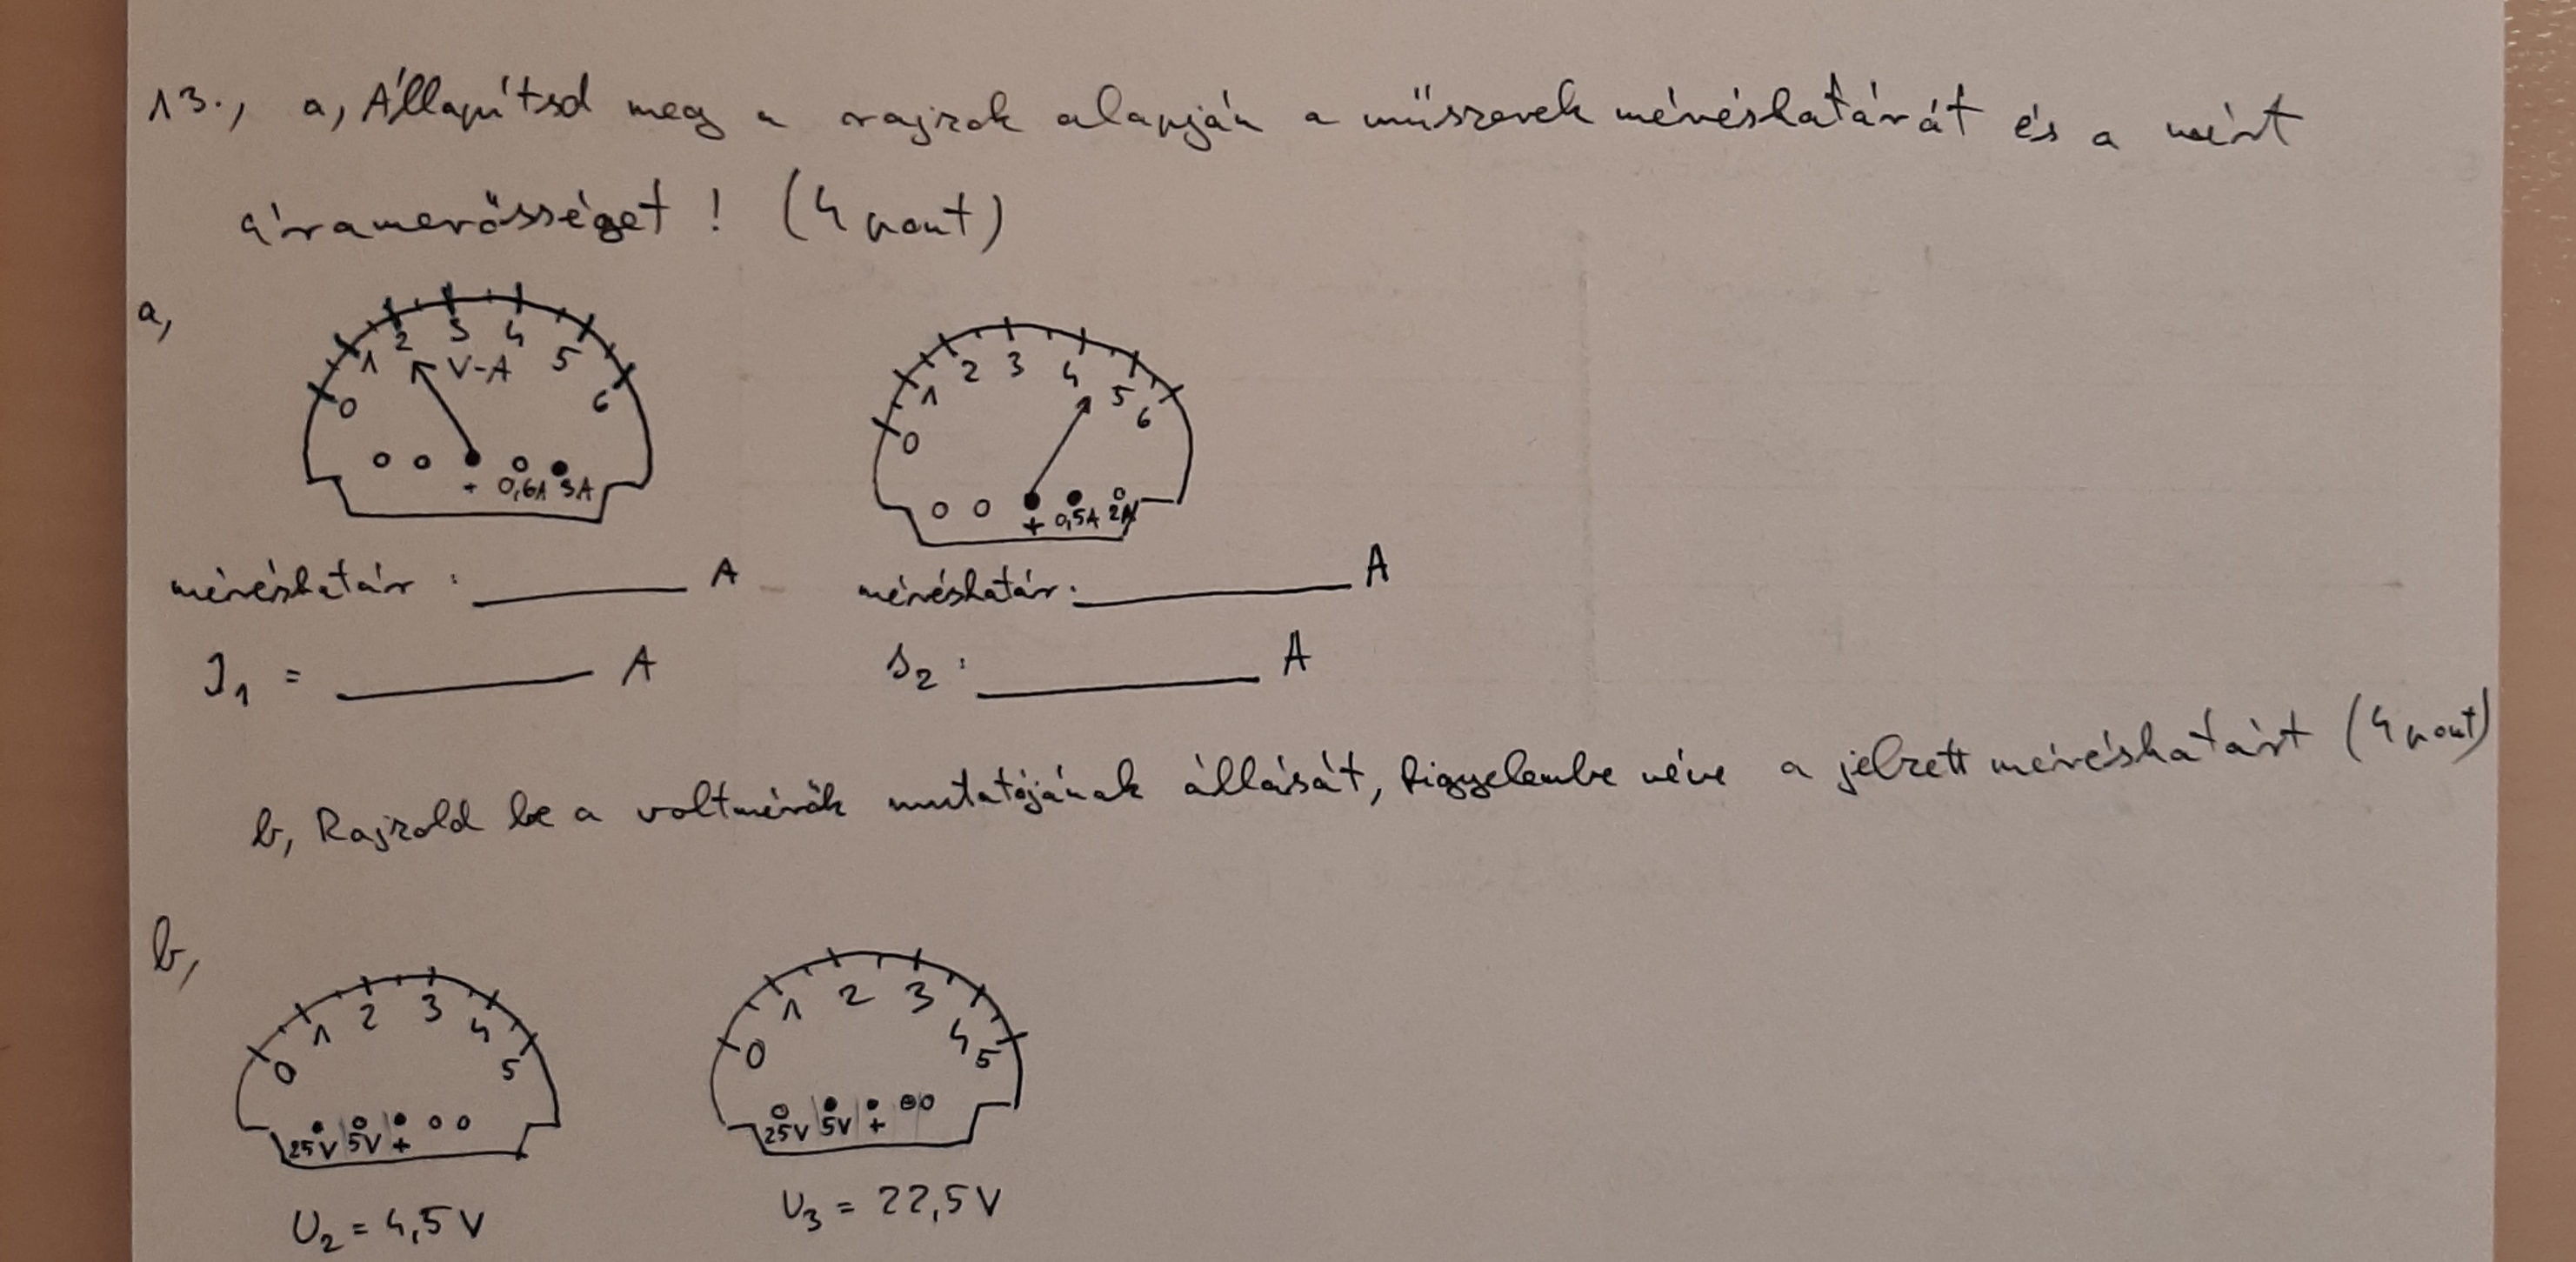 13., a, Állapítsd meg a rajzok alapján a műszerek méréshatárát és a mért
áramerősséget ! (4 pont)
a,
0 1 2 3 4 5 6
V-A
+ 0,6A 3A
0 1 2 3 4 5 6
+ 0,5A 2A
méréshatár : ______ A
méréshatár: ______ A
I1 = ______ A
I2 : ______ A
b, Rajzold be a voltmérők mutatójának állását, figyelembe véve a jelzett méréshatárt (4 pont)
b,
0 1 2 3 4 5
25V 5V +
0 1 2 3 4 5
25V 5V +
U2 = 4,5 V
U3 = 22,5 V